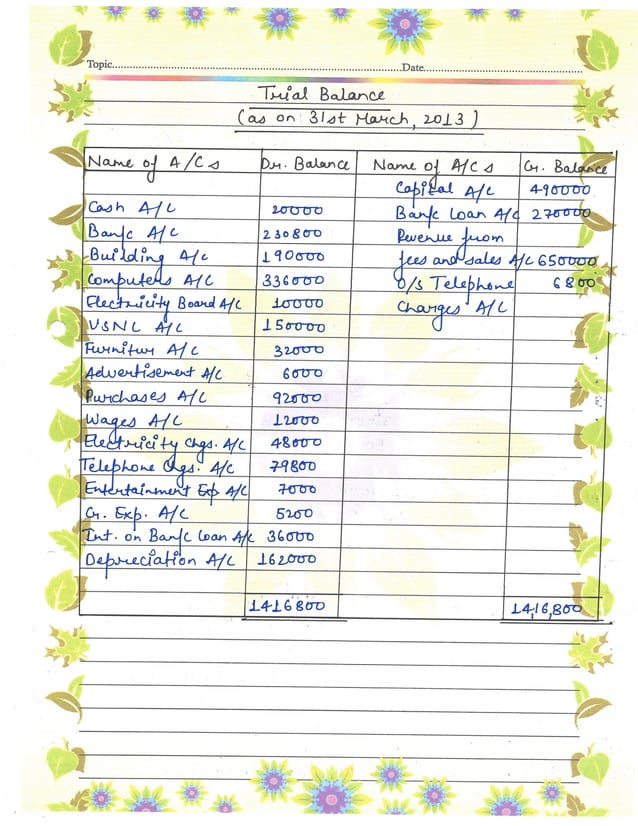 Topic.......... Date..........
Trial Balance
(as on 31st March, 2013)
Name of A/Cs Dr. Balance Name of A/Cs Cr. Balance
Capital A/C 490000
Cash A/C 20000 Bank Loan A/C 270000
Bank A/C 230800 Revenue from
Building A/C 190000 fees and sales A/C 650000
Computers A/C 336000 O/S Telephone 6800
Electricity Board A/C 10000 Charges A/C
VSNL A/C 150000
Furnitur A/C 32000
Advertisement A/C 6000
Purchases A/C 92000
Wages A/C 12000
Electricity Chgs. A/C 48000
Telephone Chgs. A/C 79800
Entertainment Exp A/C 7000
Gr. Exp. A/C 5200
Int. on Bank Loan A/C 36000
Depreciation A/C 162000
1416800 14,16,800